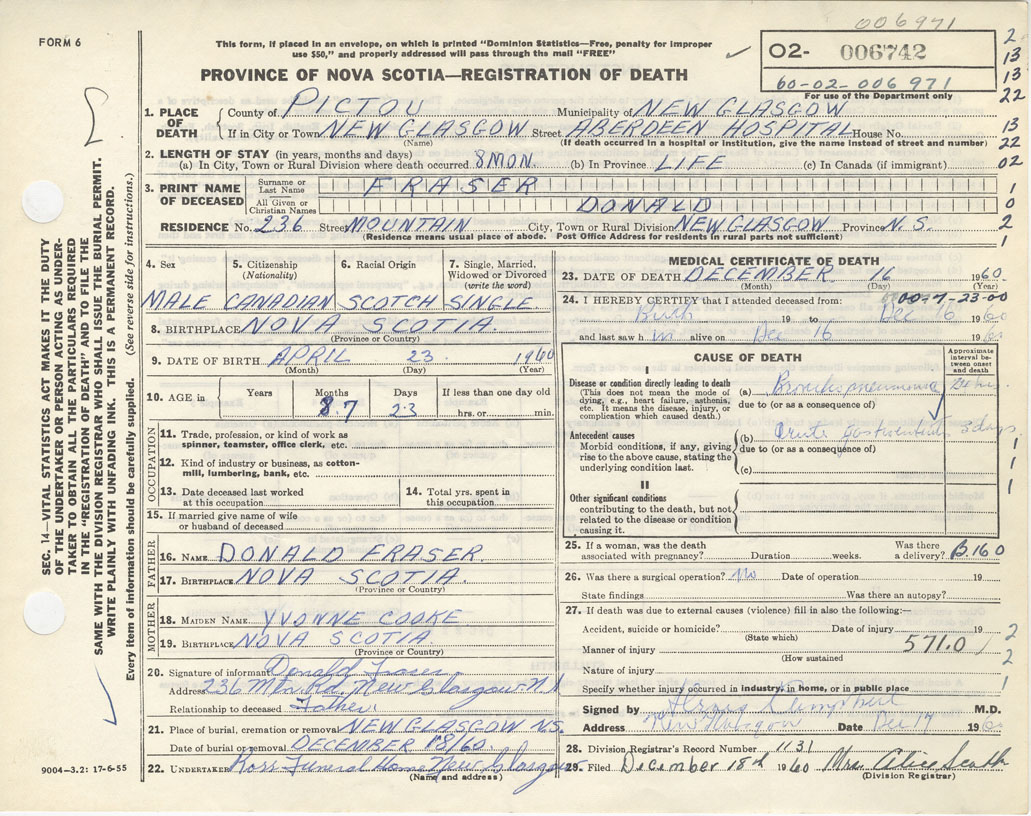 006971
FORM 6
This form, if placed in an envelope, on which is printed "Dominion Statistics—Free, penalty for improper
use $50," and properly addressed will pass through the mail "FREE"
02- 006742
60-02-006971
For use of the Department only
PROVINCE OF NOVA SCOTIA—REGISTRATION OF DEATH
1. PLACE OF DEATH
County of PICTOU Municipality of NEW GLASGOW
If in City or Town NEW GLASGOW Street ABERDEEN HOSPITAL House No.
(Name) (If death occurred in a hospital or institution, give the name instead of street and number)
2. LENGTH OF STAY (in years, months and days)
(a) In City, Town or Rural Division where death occurred 8 MON. (b) In Province LIFE (c) In Canada (if immigrant)
3. PRINT NAME OF DECEASED
Surname or Last Name FRASER
All Given or Christian Names DONALD
RESIDENCE No. 236 Street MOUNTAIN City, Town or Rural Division NEW GLASGOW Province N.S.
(Residence means usual place of abode. Post Office Address for residents in rural parts not sufficient)
2
13
13
22
13
22
02
1
0
2
1
SEC. 14—VITAL STATISTICS ACT MAKES IT THE DUTY
OF THE UNDERTAKER OR PERSON ACTING AS UNDER-
TAKER TO OBTAIN ALL THE PARTICULARS REQUIRED
IN THE "REGISTRATION OF DEATH" AND TO FILE THE
SAME WITH THE DIVISION REGISTRAR WHO SHALL ISSUE THE BURIAL PERMIT.
WRITE PLAINLY WITH UNFADING INK. THIS IS A PERMANENT RECORD.
Every item of information should be carefully supplied. (See reverse side for instructions.)
4. Sex
MALE
5. Citizenship
(Nationality)
CANADIAN
6. Racial Origin
SCOTCH
7. Single, Married,
Widowed or Divorced
(write the word)
SINGLE
8. BIRTHPLACE NOVA SCOTIA.
(Province or Country)
9. DATE OF BIRTH APRIL 23. 1960
(Month) (Day) (Year)
10. AGE in Years Months Days If less than one day old
7 23 hrs. or min.
OCCUPATION
11. Trade, profession, or kind of work as
spinner, teamster, office clerk, etc.
12. Kind of industry or business, as cotton-
mill, lumbering, bank, etc.
13. Date deceased last worked
at this occupation
14. Total yrs. spent in
this occupation
15. If married give name of wife
or husband of deceased
FATHER
16. NAME DONALD FRASER.
17. BIRTHPLACE NOVA SCOTIA.
(Province or Country)
MOTHER
18. MAIDEN NAME YVONNE COOKE
19. BIRTHPLACE NOVA SCOTIA.
(Province or Country)
20. Signature of informant Donald Fraser
Address 236 Mtn Rd. New Glasgow N.S.
Relationship to deceased Father.
21. Place of burial, cremation or removal NEW GLASGOW N.S.
Date of burial or removal DECEMBER 18/60.
22. UNDERTAKER Ross Funeral Home New Glasgow
(Name and address)
9004—3.2: 17-6-55
MEDICAL CERTIFICATE OF DEATH
23. DATE OF DEATH DECEMBER 16 1960.
(Month) (Day) (Year)
00-7-23-00
24. I HEREBY CERTIFY that I attended deceased from:
Birth 19 to Dec 16 1960
and last saw h im alive on Dec 16 1960
CAUSE OF DEATH
Approximate
interval between
onset
and death
I
Disease or condition directly leading to death
(This does not mean the mode of
dying, e.g., heart failure, asthenia,
etc. It means the disease, injury, or
complication which caused death.)
(a) Broncho pneumonia 24 hrs.
due to (or as a consequence of)
Antecedent causes
Morbid conditions, if any, giving
rise to the above cause, stating the
underlying condition last.
(b) Acute gastroenteritis 3 days
due to (or as a consequence of)
(c)
1
1
1
II
Other significant conditions
contributing to the death, but not
related to the disease or condition
causing it.
25. If a woman, was the death
associated with pregnancy? Duration weeks. Was there
a delivery? B.160
26. Was there a surgical operation? No Date of operation 19
State findings Was there an autopsy?
27. If death was due to external causes (violence) fill in also the following:—
Accident, suicide or homicide? Date of injury 19
(State which)
Manner of injury 571.0
(How sustained
Nature of injury
Specify whether injury occurred in industry, in home, or in public place
2
2
1
Signed by M.D.
Address New Glasgow Date Dec 17 1960
28. Division Registrar's Record Number 1131
29. Filed December 18th 1960 Mrs Alice
(Division Registrar)